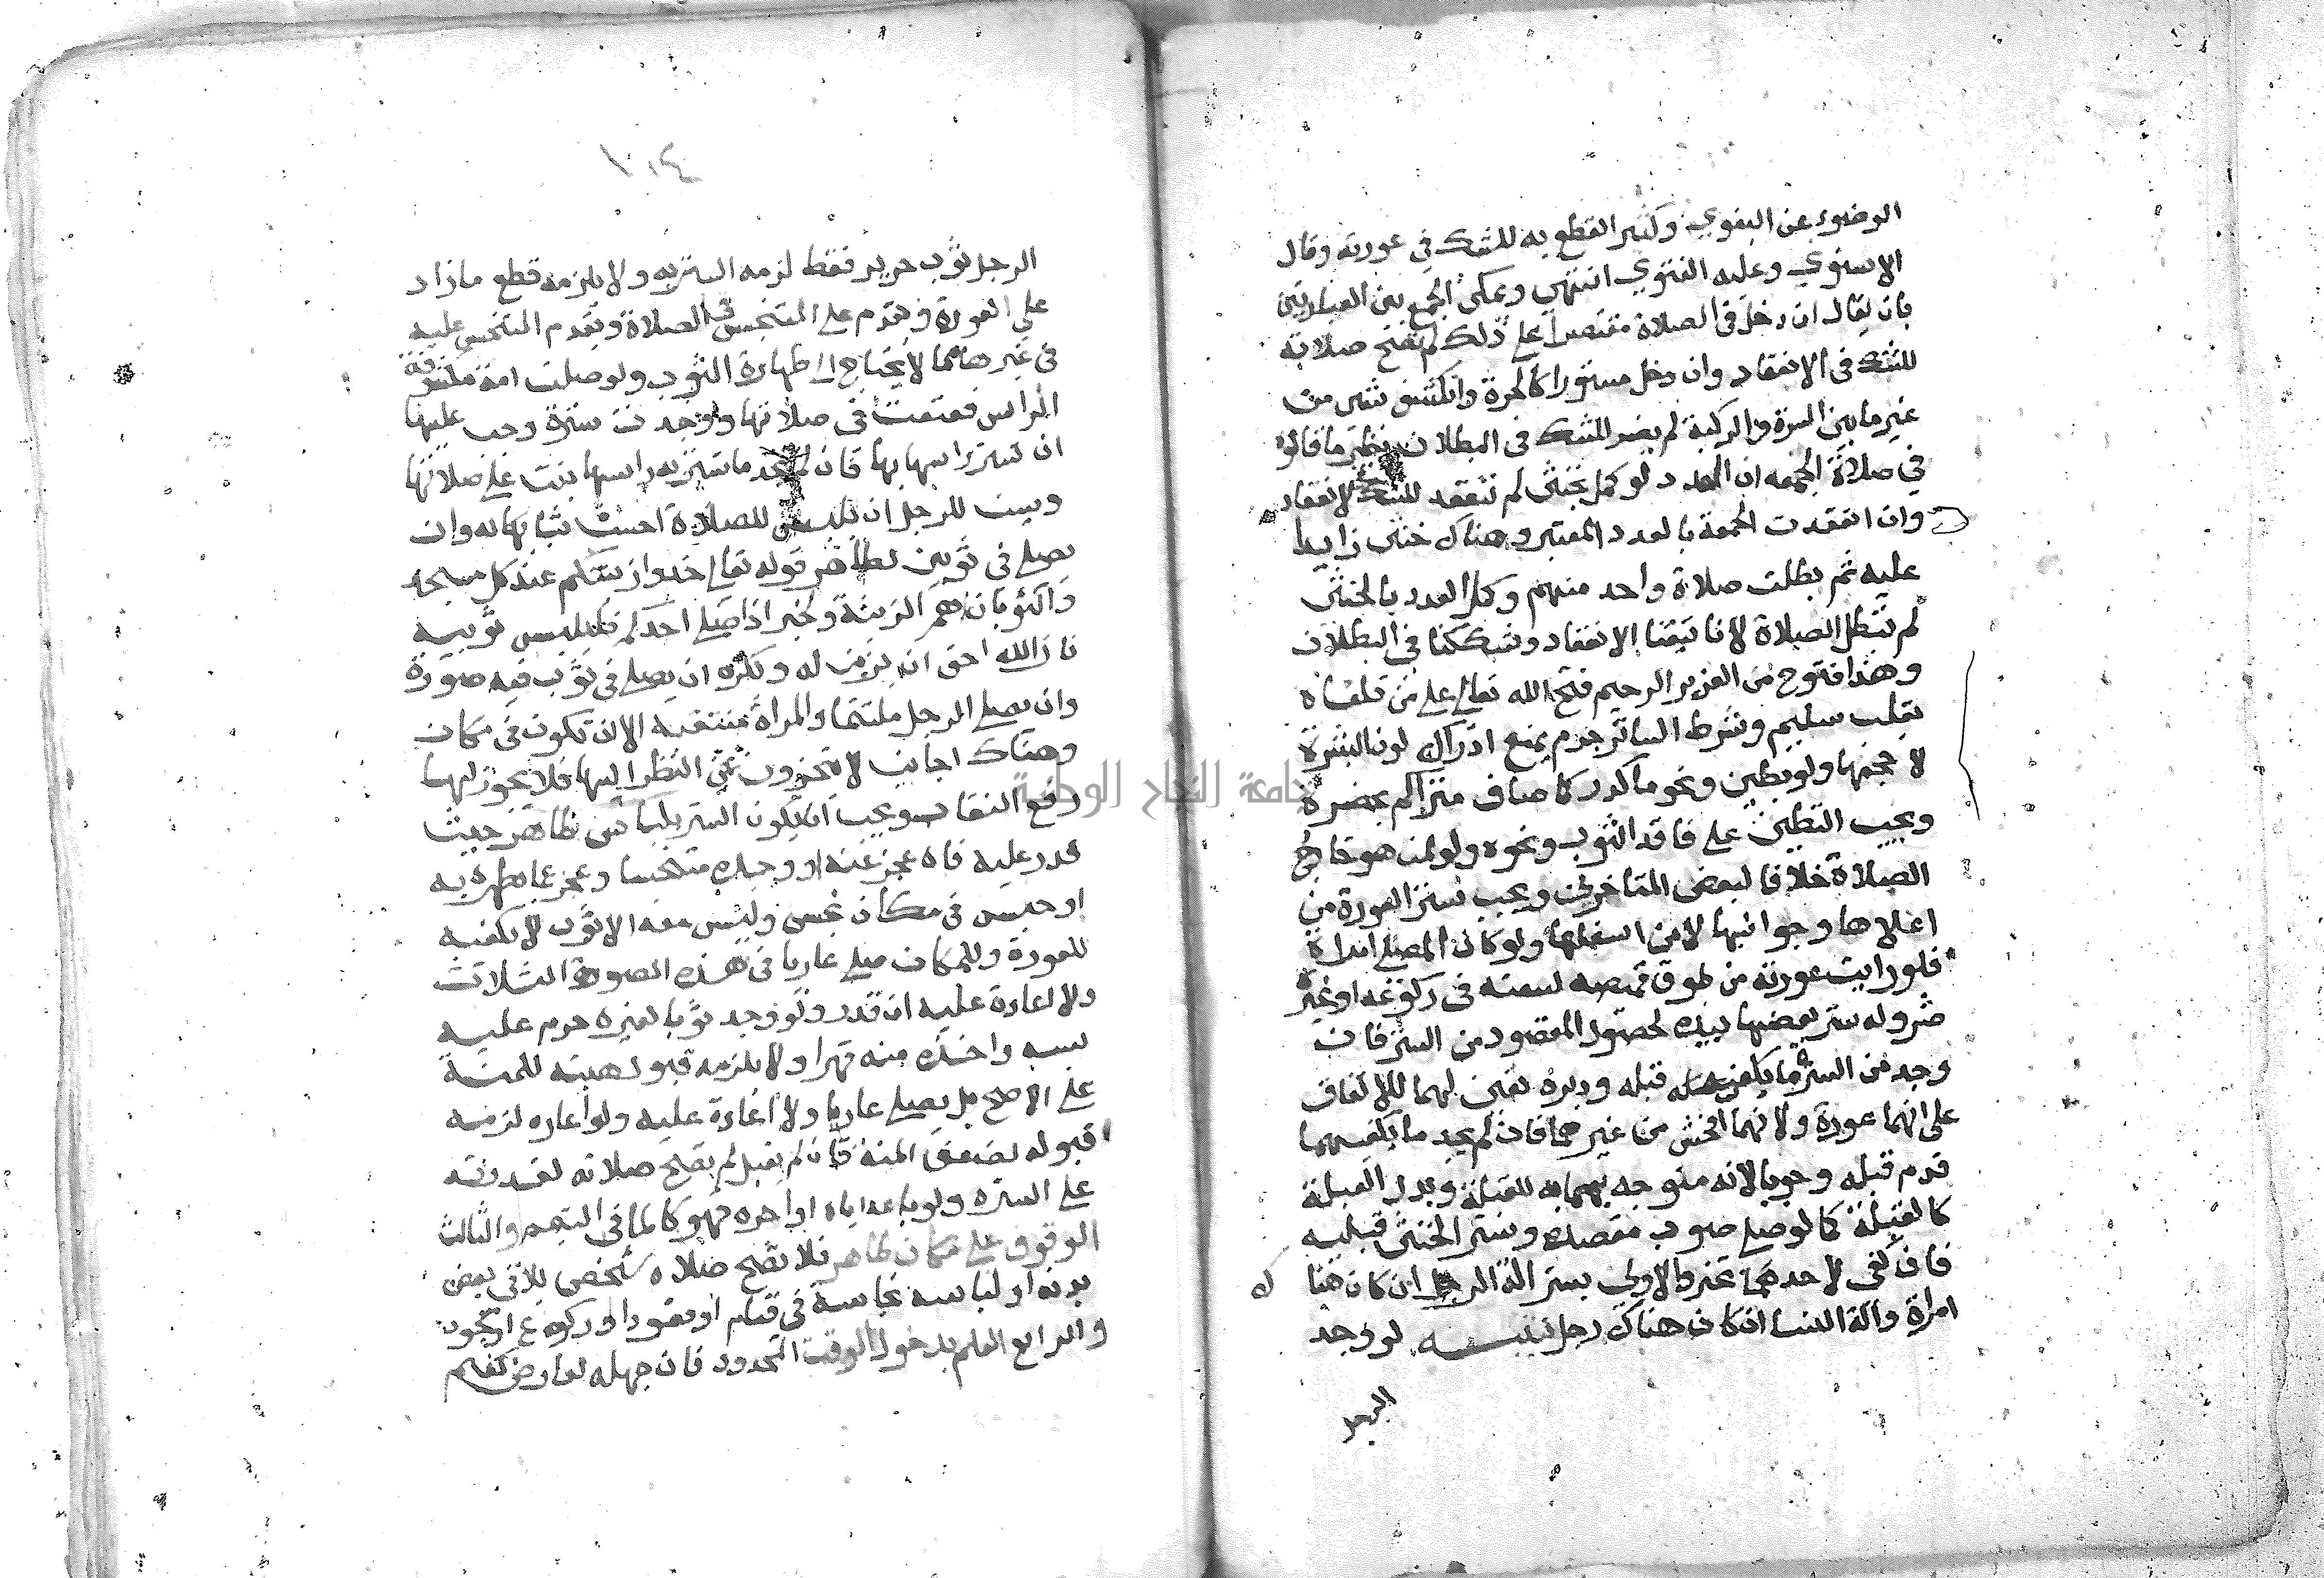 الوضوء عن البغوي وكثير القطع به للشك في عورته وقال
الاسنوي وعليه الفتوي انتهي ويمكن الجمع بين العبارتين
بان يقال ان دخل في الصلاة مقتصرا علي ذلك لم تصح صلاته
للشك في الانعقاد وان دخل مستورا كالحرة وانكشف شي من
غير ما بين السرة والركبة لم يضر للشك في البطلان نظير ما قالوه
في صلاة الجمعه ان العدد لو كمل بخنثى لم تنعقد للشك في الانعقاد
وان انعقدت الجمعة بالعدد المعتبر وهناك خنثى زايد
عليه ثم بطلت صلاة واحد منهم وكمل العدد بالخنثى
لم تبطل الصلاة لانا تيقنا الانعقاد وشككنا في البطلان
وهذا فتوح من العزيز الرحيم فتح الله تعالى علي من تلقاه
بقلب سليم وشرط الساتر جرم يمنع ادراك لون البشرة
لا حجمها ولو بطين ونحو ماكدر كماء صاف متراكم بخضرة
ويجب التطيين علي فاقد الثوب ونحوه ولو لمن هو خارج
الصلاة خلافا لبعض المتاخرين ويجب ستر العورة من
اعلاها وجوانبها لا من اسفلها ولو كان المصلي امراة
فلو رايت عورته من طوق قميصه لسعته في ركوعه او غيره
ضر وله ستر بعضها بيده لحصول المقصود من الستر فان
وجد من السترة ما يكفي قبله ودبره تعين لهما للاتفاق
علي انهما عورة ولانهما افحش من غيرهما فان لم يجد ما يكفيهما
قدم قبله وجوبا لانه متوجه به للقبلة وبدل القبلة
كالقبلة كما لو صلى صوب مقصده وستر الخنثى قبليه
فان كفى لاحدهما تخير والاولى يستر الة الرجل ان كان هنا
امراة والة النسا ان كان هناك رجل تنبيه لو وجد
الرجل
١٠٤
الرجل ثوب حرير فقط لزمه الستر به ولا يلزمه قطع ما زاد
علي العورة ويقدم علي المتنجس في الصلاة ويقدم المتنجس عليه
في غيرها مما لا يحتاج الى طهارة الثوب ولو صلت امة مكشوفة
الراس فعتقت في صلاتها ووجدت سترة وجب عليها
ان تستر راسها بها فان لم تجد ما تستر به راسها بنت علي صلاتها
ويسن للرجل ان يلبس للصلاة احسن ثيابه وان
يصلي في ثوبين لظاهر قوله تعالى خذوا زينتكم عند كل مسجد
والثوبان اهم الزينة ولخبر اذا صلى احدكم فليلبس ثوبيه
فان الله احق ان يزين له ويكره ان يصلي في ثوب فيه صورة
وان يصلي الرجل ملتثما والمراة منتقبه الا ان تكون في مكان
وهناك اجانب لا يحترزون عن النظر اليها فلا يجوز لها
رفع النقاب ويجب ان يكون الستر بلباس طاهر حيث
قدر عليه فان عجز عنه او وجده متنجسا وعجز عما يطهره به
او حبس في مكان نجس وليس معه الا ثوب لا يكفيه
للعورة وللمكان صلى عاريا في هذه الصورة الثلاث
ولا اعادة عليه ان قدر ولو وجد ثوبا لغيره حرم عليه
لبسه واخذه منه قهرا ولا يلزمه قبول هبته للمنة
علي الاصح بل يصلي عاريا ولا اعادة عليه ولو اعاره لزمه
قبوله لضعف المنة فان لم يقبل لم تصح صلاته لقدرته
علي السترة ولو باعه اياه او اجره فهو كالماء في التيمم والثالث
الوقوف علي مكان طاهر فلا تصح صلاة شخص يلاقي بعض
بدنه او لباسه نجاسة في قيام او قعود او ركوع او سجود
والرابع العلم بدخول الوقت المحدود فان جهله لعارض كغيم
جامعة النجاح الوطنية